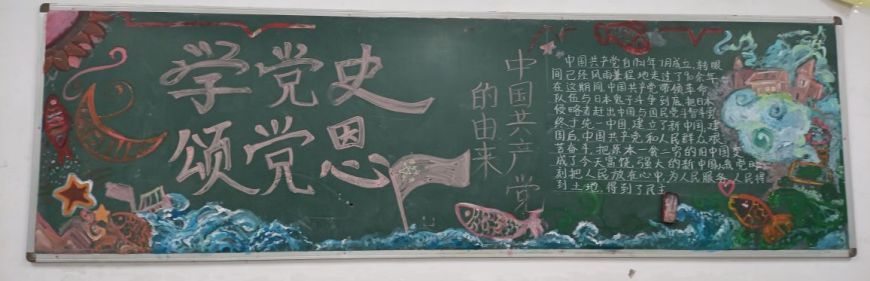 学党史
颂党恩
中国共产党
的由来
中国共产党自1921年7月成立,转眼
间已经风雨兼程地走过了90余年
在这期间,中国共产党带领革命
队伍与日本鬼子斗争到底,把日本
侵略者赶出中国与国民党斗智斗勇
终于统一中国,建立了新中国,建
国后,中国共产党和人民群众艰
苦奋斗,把原本一贫二穷的旧中国变
成了今天富饶,强大的新中国,我党时
刻把人民放在心中,为人民服务,人民得
到土地,得到了民主